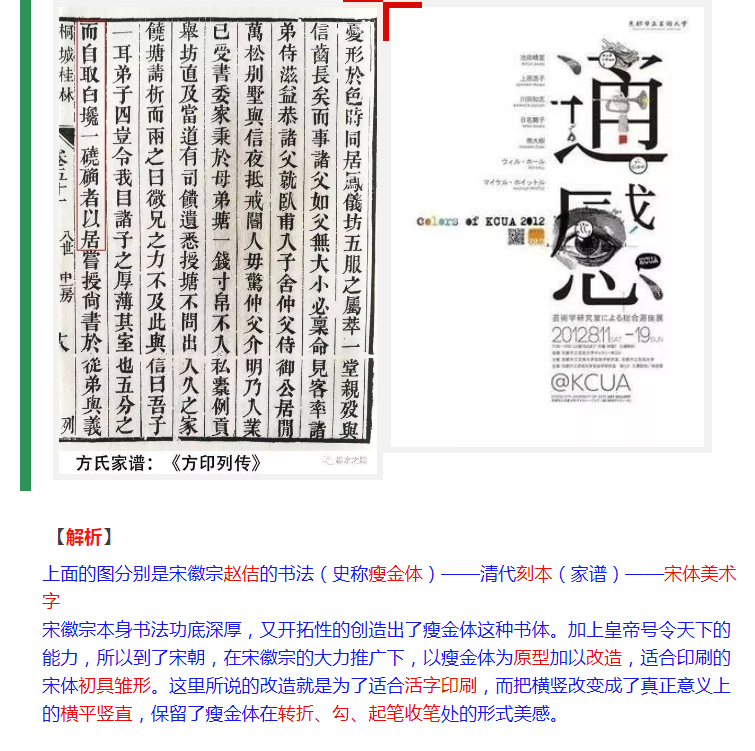 憂形於色時同居鳳儀坊五服之屬萃一堂親歿與
信齒長矣而事諸父如父無大小必稟命見客率諸
弟侍滋益恭諸父就臥甫入子舍仲父侍御公居閒
萬松别墅與信夜抵戒閽人毋驚仲父介明乃入業
已受書委家秉於母弟塘一錢寸帛不入私橐例貢
舉坊直及當道有司饋遺悉授塘不問出入久之家
饒塘請析而兩之曰微兄之力不及此與信曰吾子
一耳弟子四豈令我目諸子之厚薄其室也五分之
而自取白一磽者以居嘗授尚書於從弟與義
桐城桂林 卷五十一 八世 中一房 列
方氏家谱：《方印列传》
京都市立芸術大学
池田精堂
上原浩子
川田知志
日名舞子
周大樹
ウィル・ホール
マイケル・ホイットル
通感
colors of KCUA 2012
KCUA
芸術学研究室による総合選抜展
2012.8.11SAT–19SUN
@KCUA
【解析】
上面的图分别是宋徽宗赵佶的书法（史称瘦金体）——清代刻本（家谱）——宋体美术
字
宋徽宗本身书法功底深厚，又开拓性的创造出了瘦金体这种书体。加上皇帝号令天下的
能力，所以到了宋朝，在宋徽宗的大力推广下，以瘦金体为原型加以改造，适合印刷的
宋体初具雏形。这里所说的改造就是为了适合活字印刷，而把横竖改变成了真正意义上
的横平竖直，保留了瘦金体在转折、勾、起笔收笔处的形式美感。